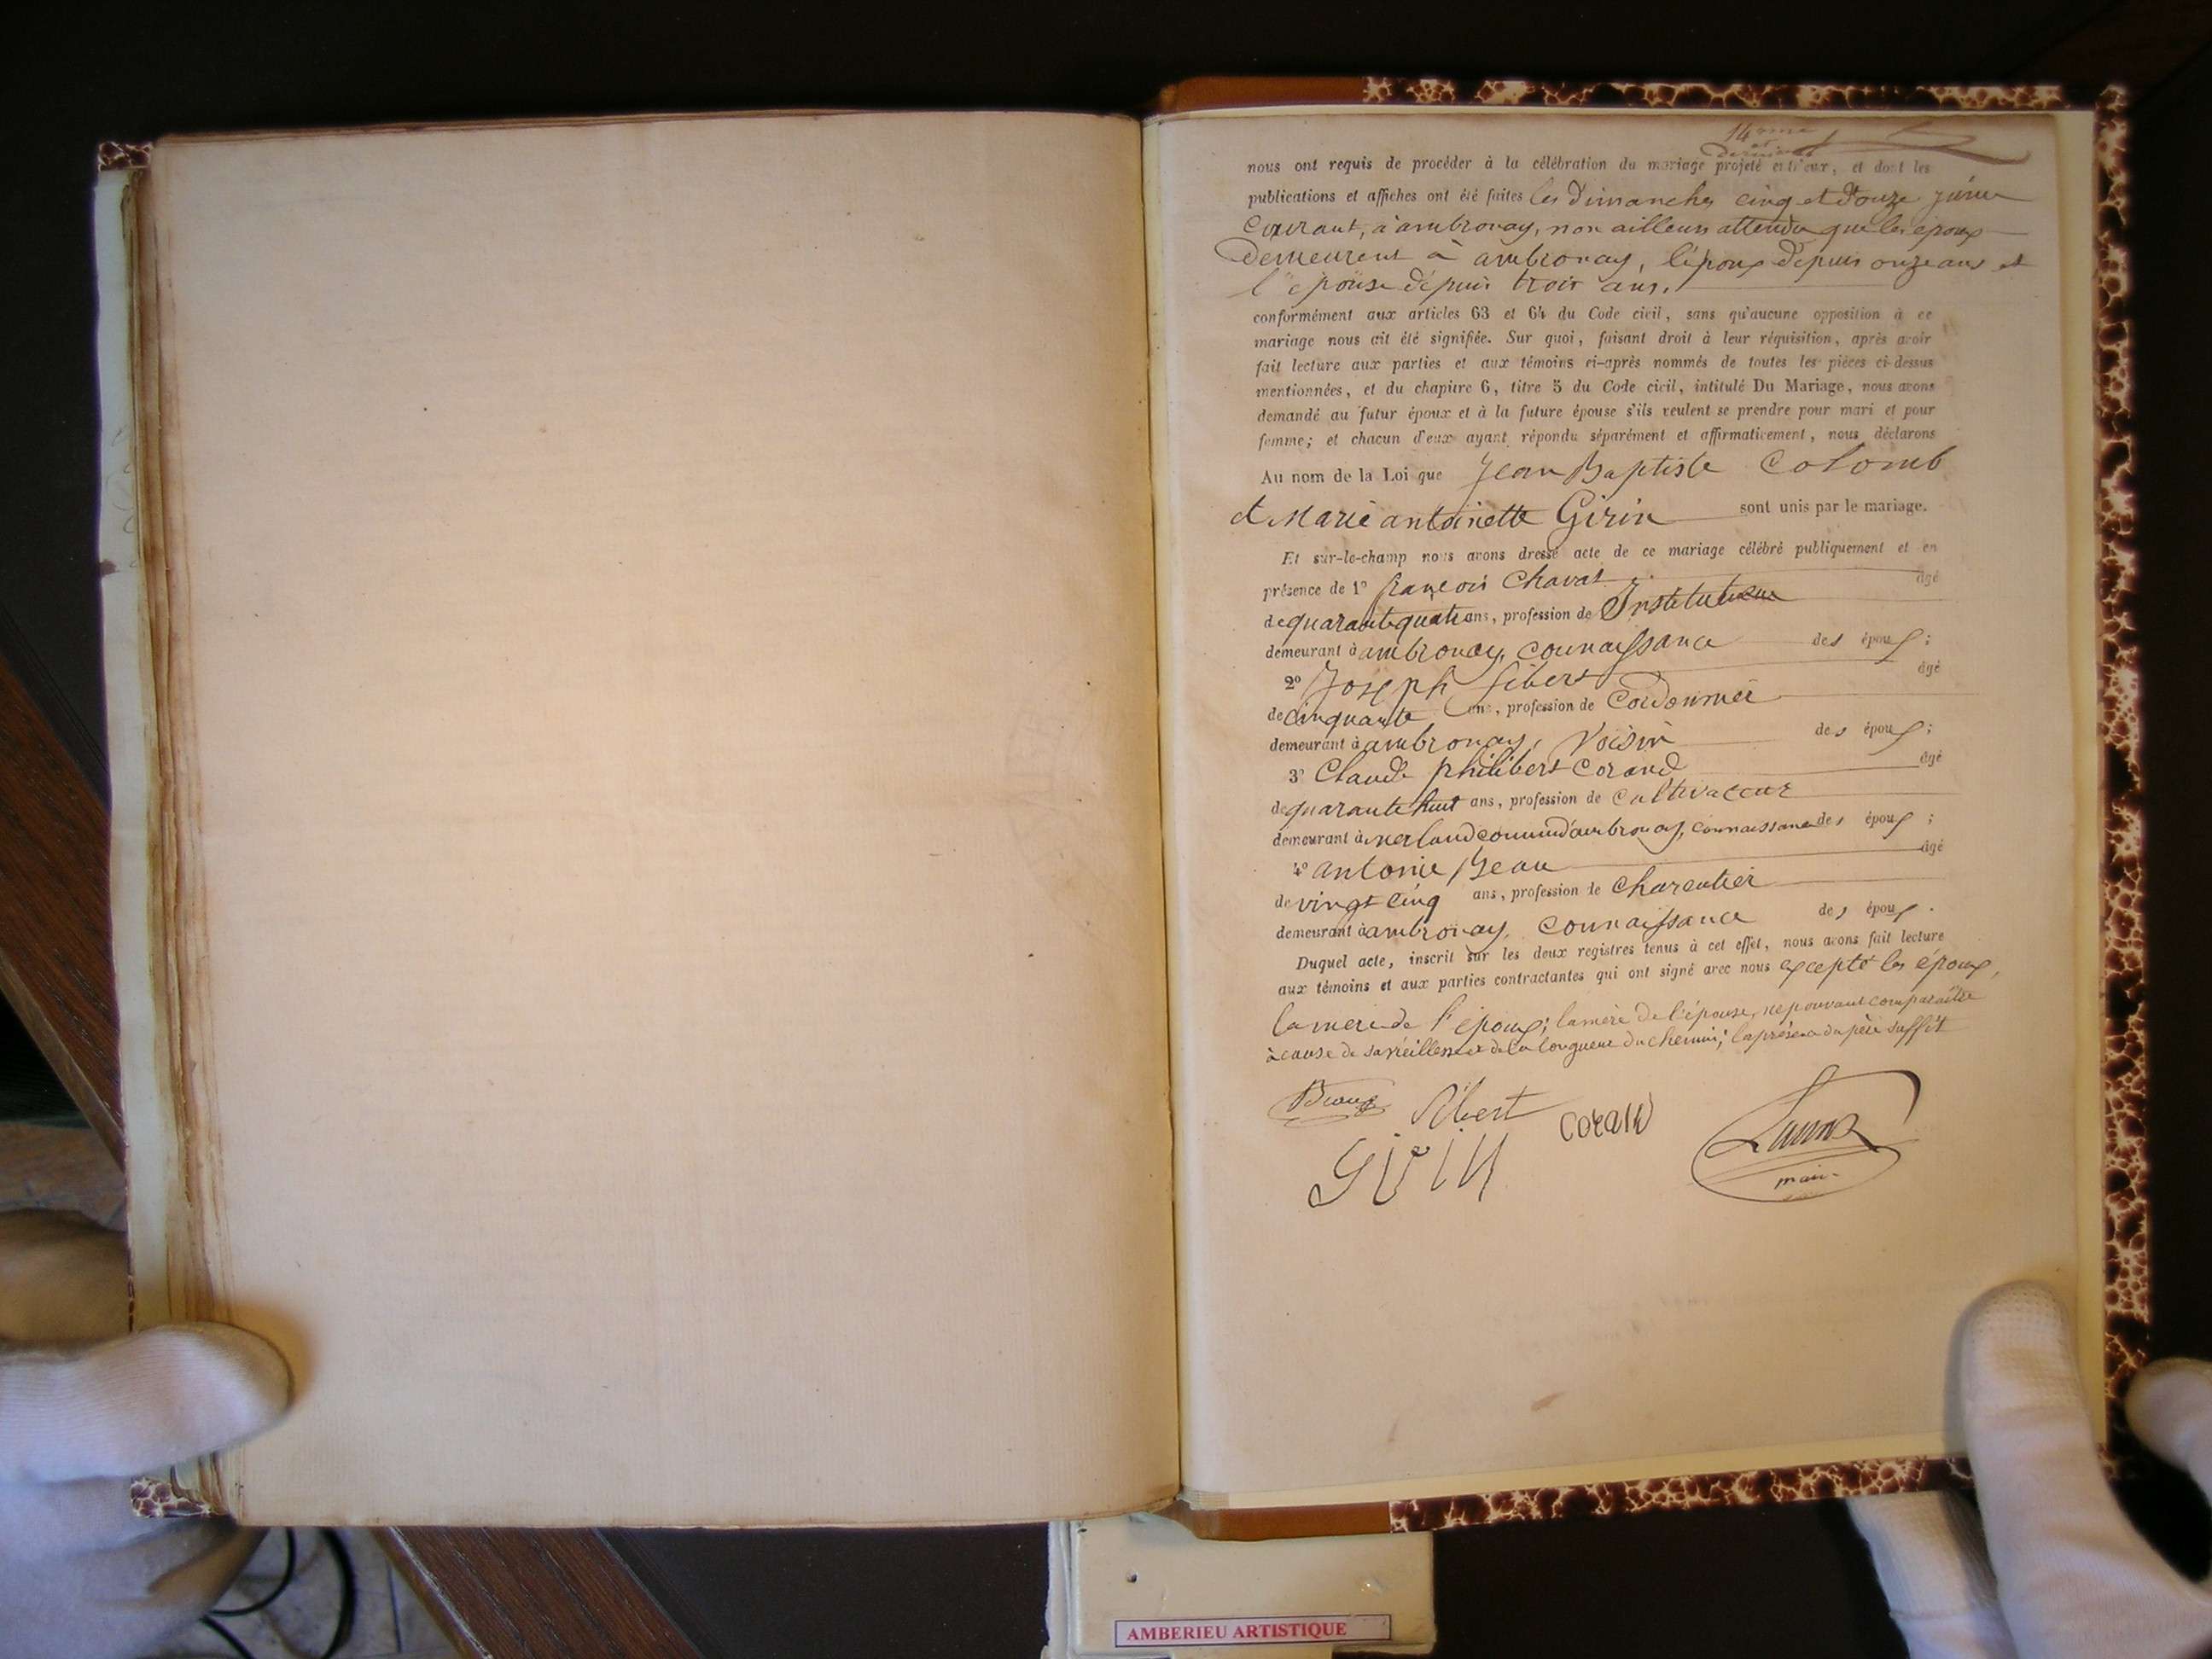 14eme
et
dernier
nous ont requis de procéder à la célébration du mariage projeté entr'eux, et dont les
publications et affiches ont été faites les Dimanches cinq et Douze juin
courant, à ambronay, non ailleurs attendu que les époux
Demeurent à ambronay, l'époux Depuis onze ans et
l'épouse dépuis trois ans.
conformément aux articles 63 et 64 du Code civil, sans qu'aucune opposition à ce
mariage nous ait été signifiée. Sur quoi, faisant droit à leur réquisition, après avoir
fait lecture aux parties et aux témoins ci-après nommés de toutes les pièces ci-dessus
mentionnées, et du chapitre 6, titre 5 du Code civil, intitulé Du Mariage, nous avons
demandé au futur époux et à la future épouse s'ils veulent se prendre pour mari et pour
femme; et chacun d'eux ayant répondu séparément et affirmativement, nous déclarons
Au nom de la Loi que Jean Baptiste Colomb
et Marie antoinette Girin sont unis par le mariage.
Et sur-le-champ nous avons dressé acte de ce mariage célébré publiquement et en
présence de 1° françois Chavat âgé
de quarante quatre ans, profession de Instituteur
demeurant à ambronay, connaissance des époux;
2° Joseph âgé
de Cinquante ans, profession de Cordonnier
demeurant à ambronay, Voisin des époux;
3° Claude philibert Corand âgé
de quarante huit ans, profession de Cultivateur
demeurant à merland commune d'ambronay, connaissance des époux;
4° antonie Beau âgé
de vingt cinq ans, profession de Charentier
demeurant à ambronay, connaissance des époux.
Duquel acte, inscrit sur les deux registres tenus à cet effet, nous avons fait lecture
aux témoins et aux parties contractantes qui ont signé avec nous excepté les époux,
la mère de l'époux; la mère de l'épouse, ne pouvant comparaître
à cause de sa vieillesse et de la longueur du chemin; la présence du père suffit
Corand
Girin
maire
AMBERIEU ARTISTIQUE